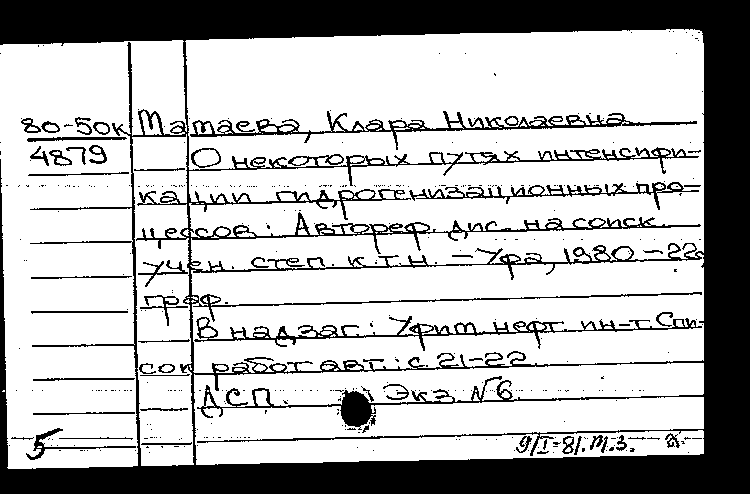 80-50к Матаева, Клара Николаевна
4879 О некоторых путях интенсифи-
кации гидрогенизационных про-
цессов: Автореф. дис. на соиск.
учен. степ. к.т.н. – Уфа, 1980 – 22с,
граф.
В надзаг.: Уфим. нефт. ин-т. Спи-
сок работ авт.: с. 21-22
ДСП. Экз. №6.
5 9/I-81. т.з.